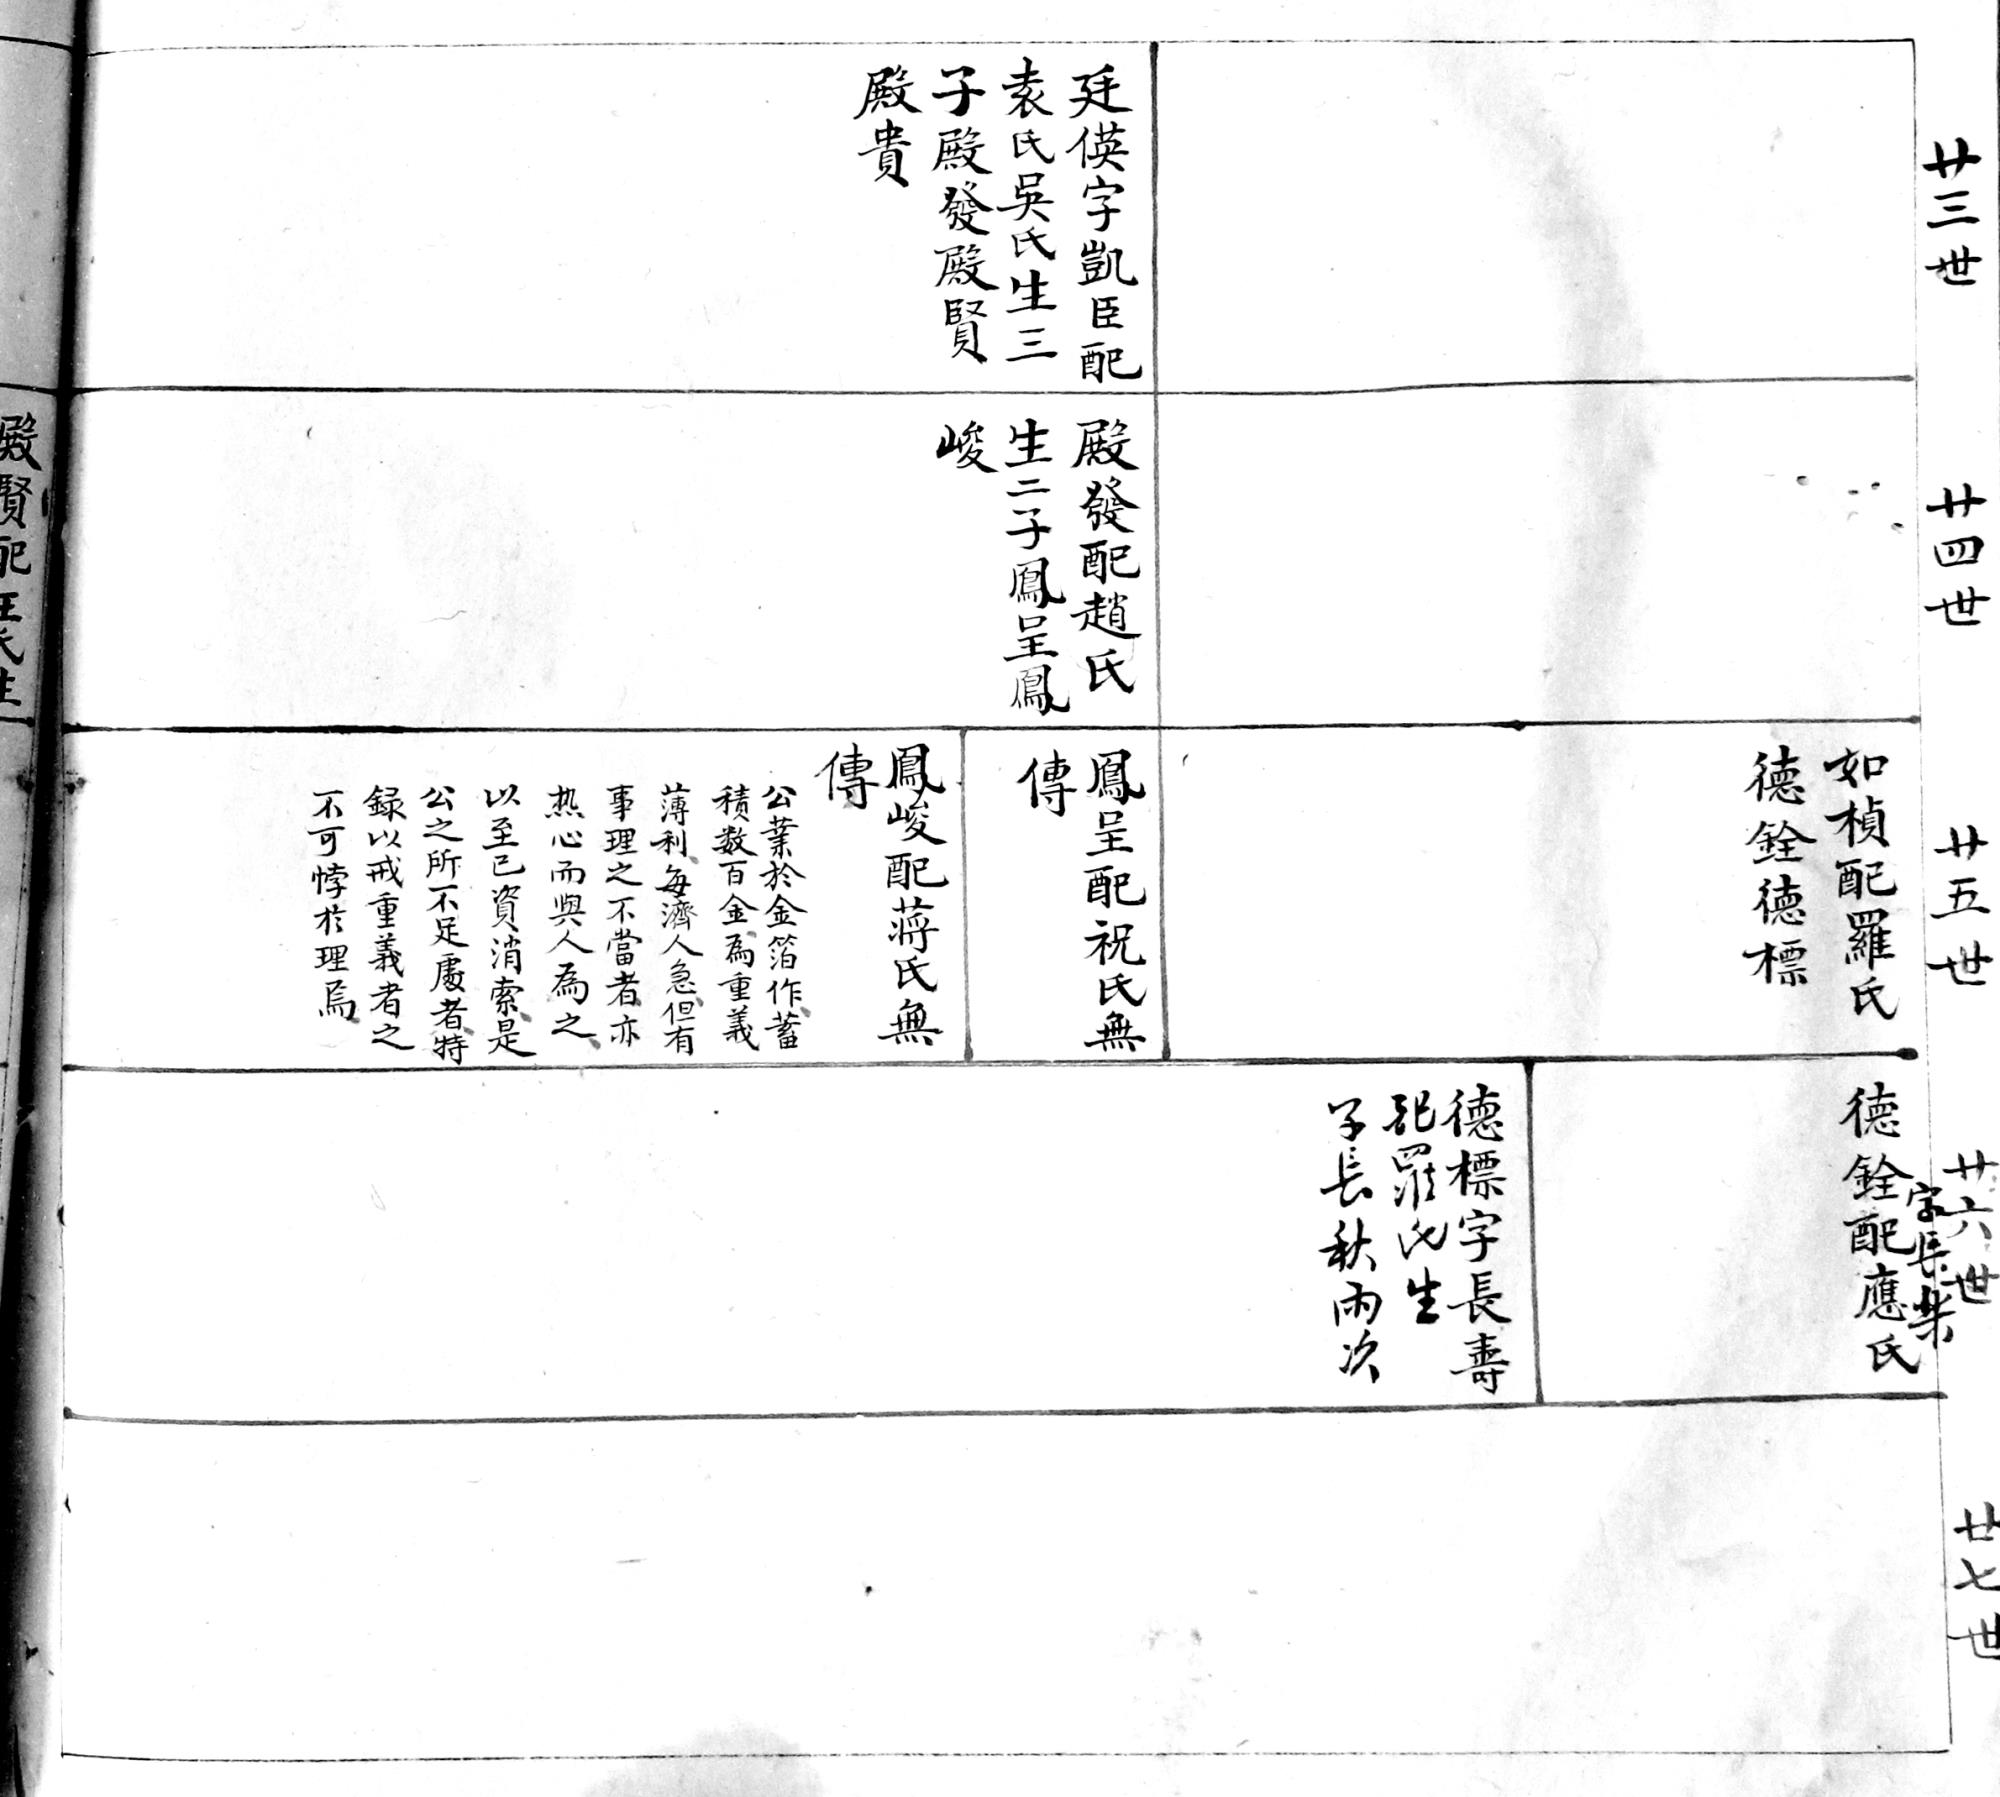 廿三世
廷偀字凱臣配
袁氏吳氏生三
子殿發殿賢
殿貴
廿四世
殿發配趙氏
生二子鳳呈鳳
峻
廿五世
如楨配羅氏
德銓德標
鳳呈配祝氏無
傳
鳳峻配蔣氏無
傳
公業於金箔作、蓄
積数百金、為重義
薄利、每濟人急、但有
事理之不當者、亦
热心而與人為之、
以至已資消索、是
公之所不足處者、特
録以戒重義者之
不可悖於理焉、
廿六世
字長榮
德銓配應氏
德標字長壽
配羅氏生
子長秋雨次
廿七世
殿賢配王氏生